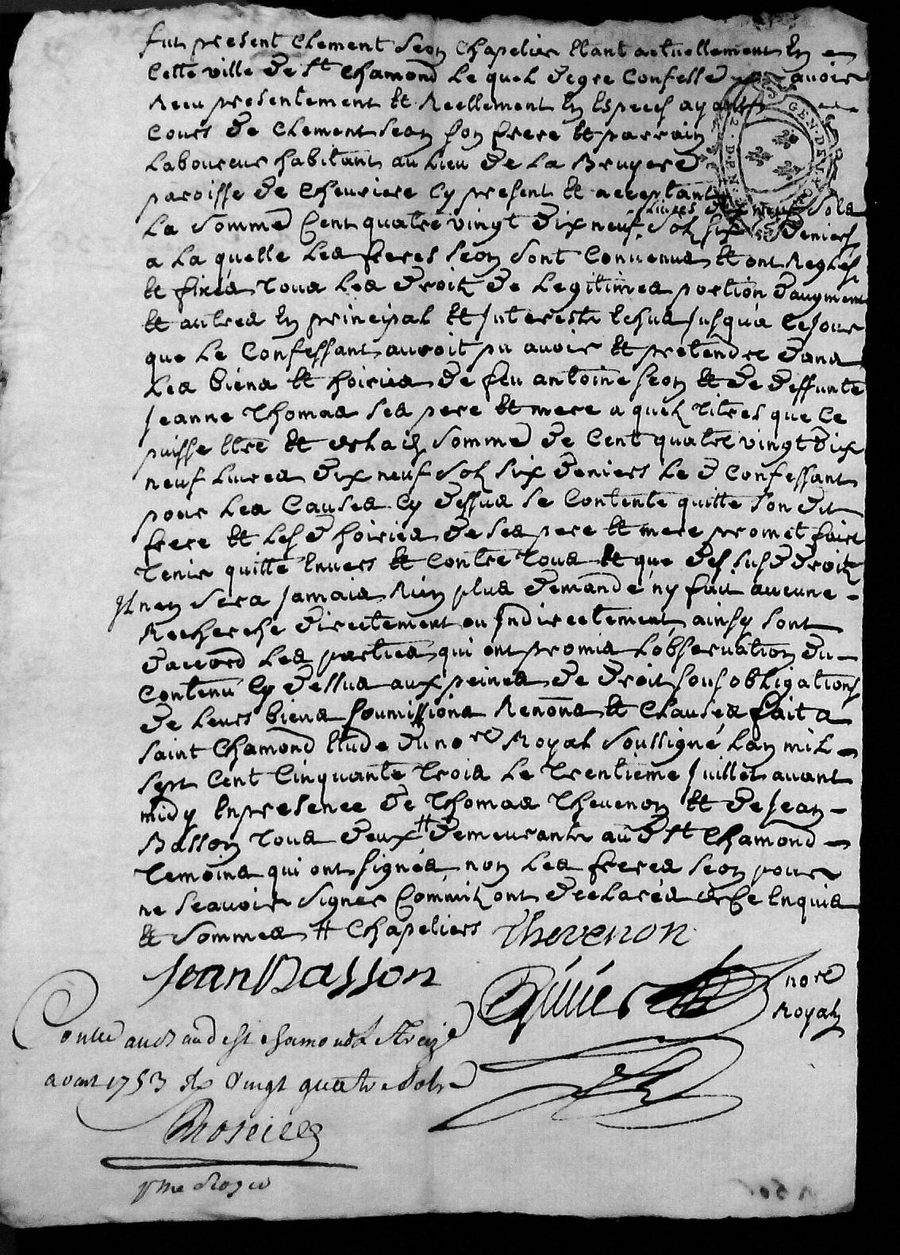 fut present Clement Seon Chapelier Etant actuellement En
Cette ville de St Chamond Le quel degre Confesse avoir
Receu presentement Et Reellement En Especes ayant
Cours de Clement Seon son frere Et parrain
Laboureur habitant au Lieu de La Bruyere
paroisse de Chevriere Cy present Et acceptant
La Somme Cent quatre vingt dix neuf Livres dix neuf Sols six deniers
a La quelle Les freres Seon Sont Convenus Et ont Regles
Et fixes tous Les droits de Legitimes portion daugment
Et autres En principal Et Interests Echus Jusqua Ce Jour
que Le Confessant auroit pu avoir Et pretendre dans
Les biens Et hoiries de feu antoine Seon Et de deffunte
Jeanne Thomas Ses pere Et mere a quels titres que Ce
puisse Etre Et Somme de Cent quatre vingt dix
neuf Livres dix neuf Sols Six deniers Le d Confessant
pour Les Causes Cy dessus Se Contente quitte Son dit
frere Et Les d hoiries de Ses pere Et mere promet faire
tenir quitte Envers Et Contre tous Et que des Sus d droits
Il n'en Sera Jamais Rien plus demandé ny fait aucune
Recherche directement ou Indirectement ainsy Sont
daccord Les parties qui ont promis Lobservation du
Contenu Cy dessus aux peines de droit Sous obligations
de Leurs biens Soumissions Renons Et Clauses fait a
Saint Chamond Etude du nore Royal Soussigné Lan mil
Sept Cent Cinquante trois Le trentieme Juillet avant
midy En presence de Thomas Thevenon Et de Jean
Basson tous deux # demeurants au d St Chamond
temoins qui ont Signés non Les freres Seon pour
ne Scavoir Signer Comm'ils ont declarés de Ce Enquis
Et Sommes # Chapeliers Thevenon
Jean Basson
nore
Royal
Conllé au St chamond Le treize
aoust 1753 vingt quatre Sols